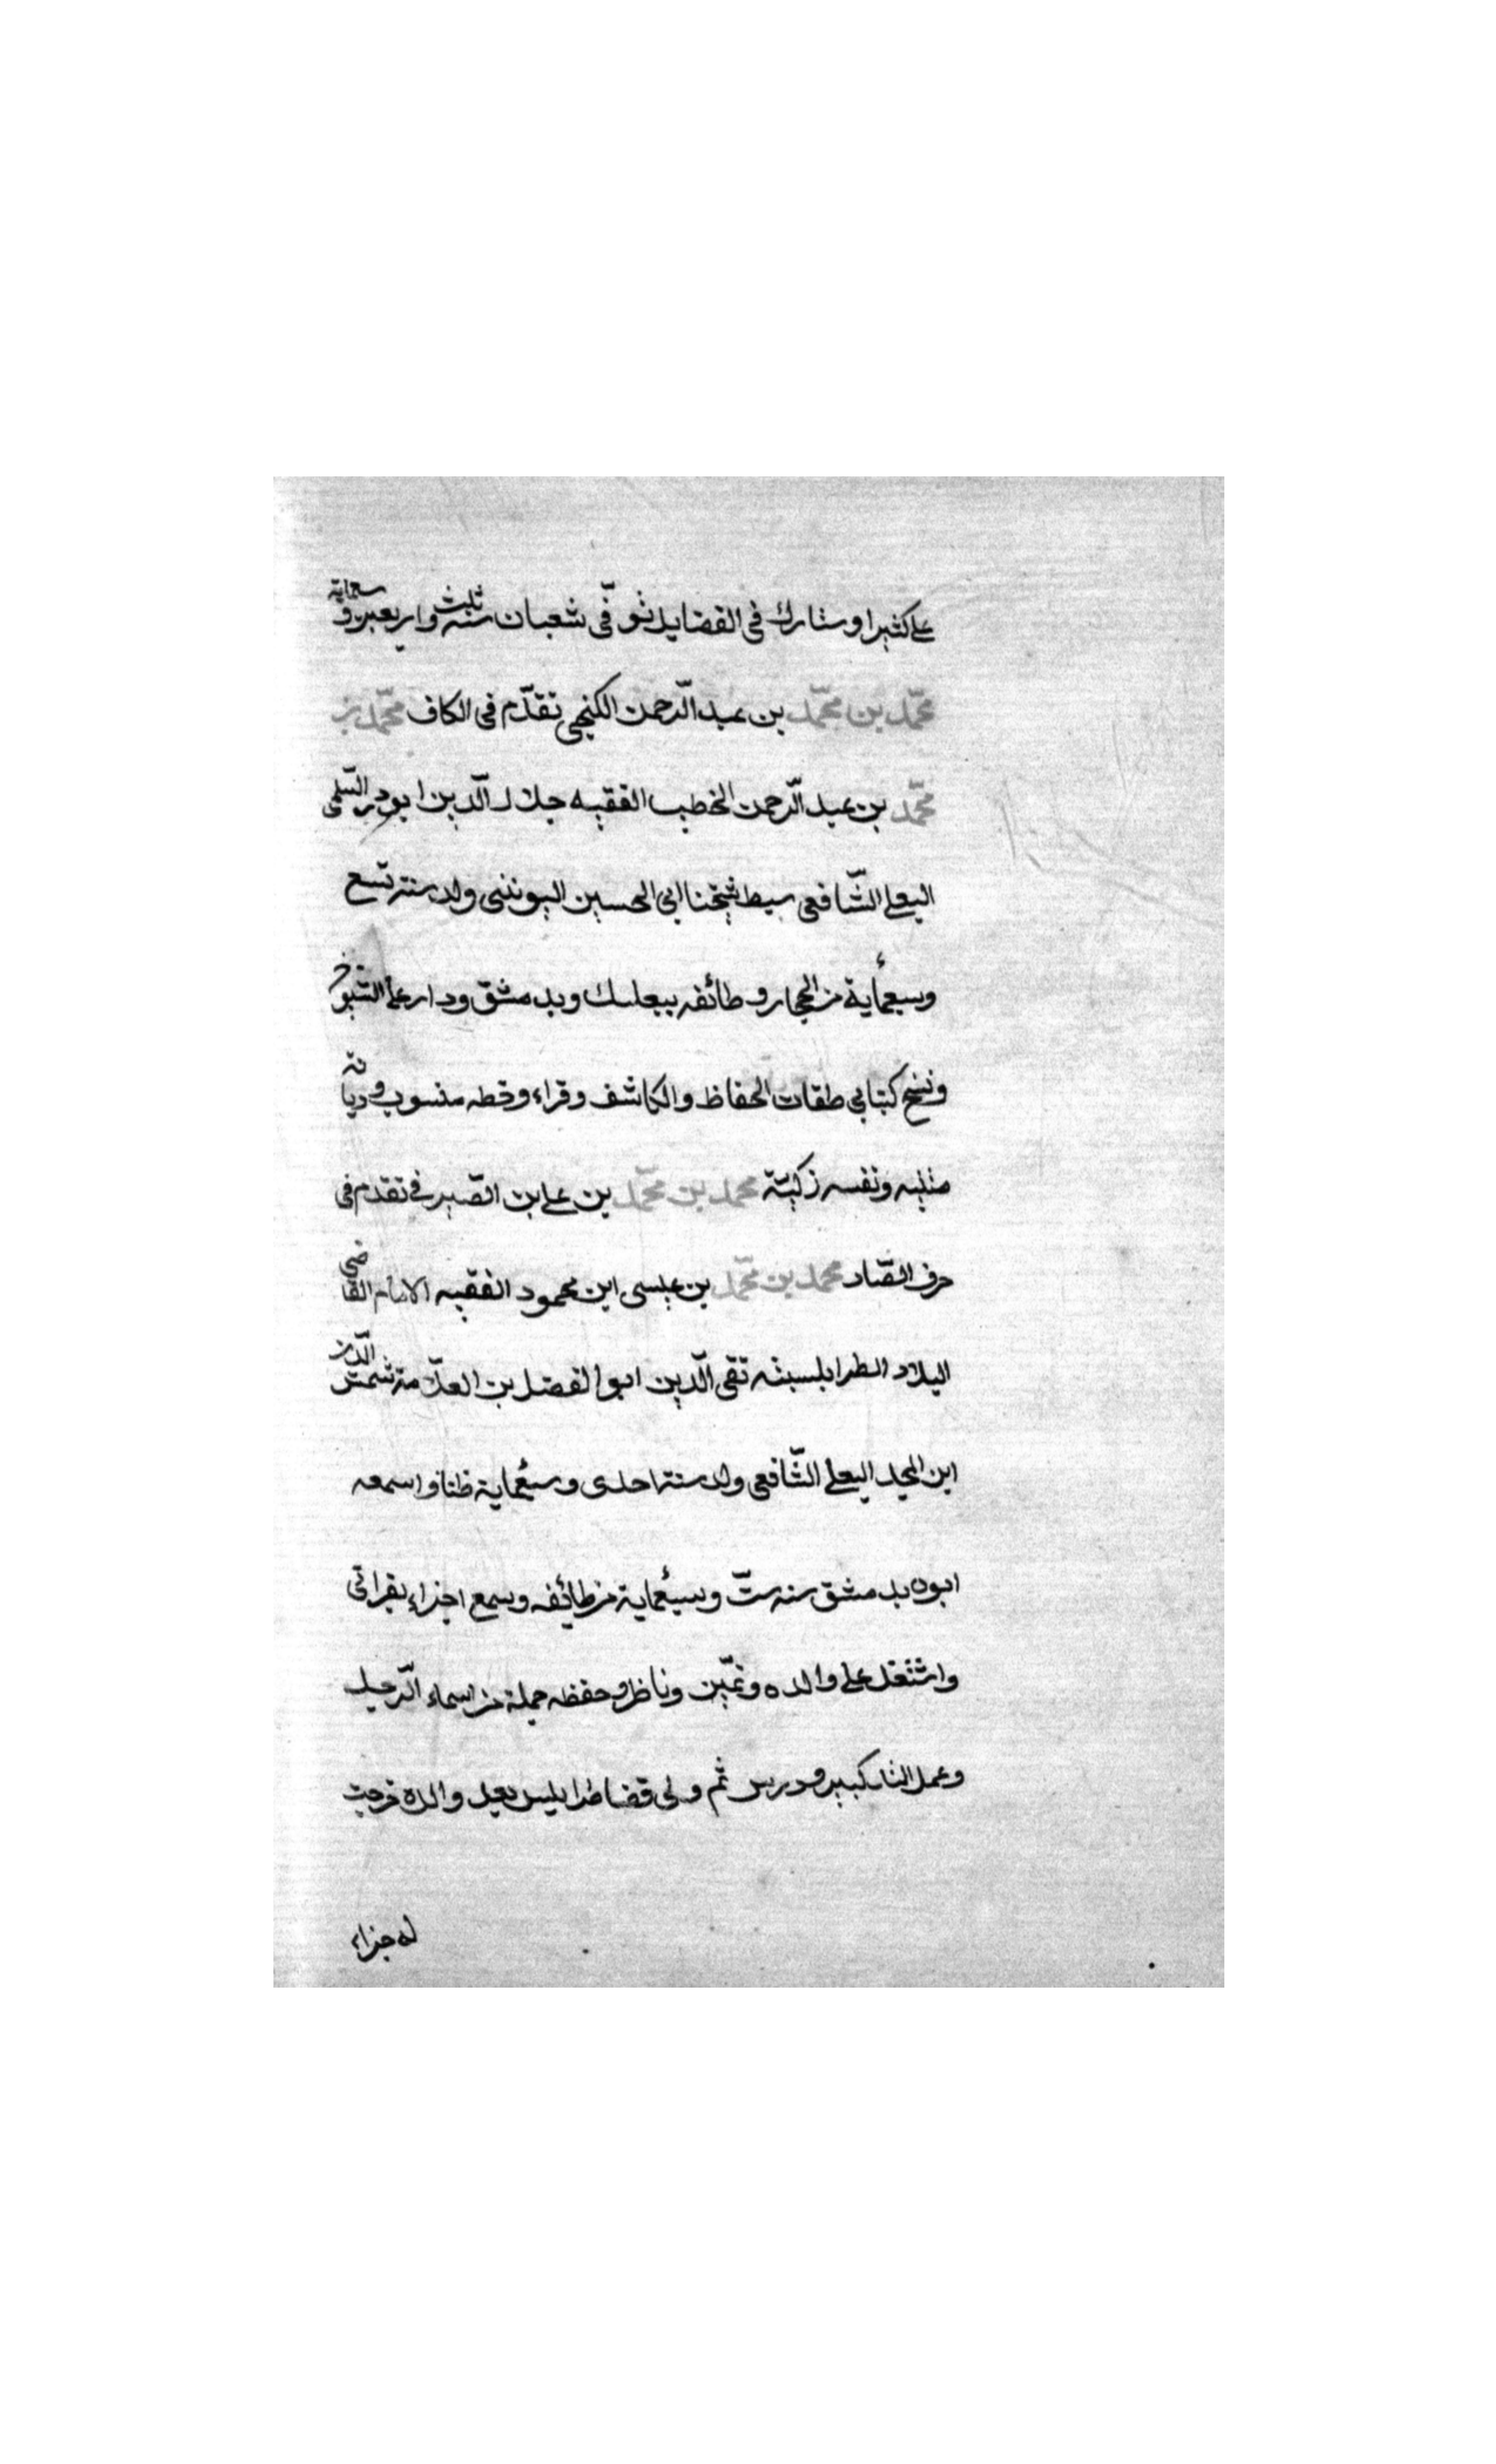 علي كثيرا وشارك في الفضايل توفّي في شعبان سنة ثلث واربعين وسبعماية
محمّد بن محمّد بن عبد الرّحمن الكنجي تقدّم في الكاف محمّد بن
محمّد بن عبد الرّحمن الخطيب الفقيه جلال الدّين ابو ذر السّلمي
البعلي الشّافعي سبط شيخنا ابي الحسين اليونيني ولد سنة تسع
وسبعماية من الحجار وطائفه ببعلبك وبدمشق ودار على الشيوخ
ونسخ كتابي طبقات الحفاظ والكاشف وقراء وخطه منسوب وديانة
متينه ونفسه زكيّة محمد بن محمّد بن علي بن الصّيرفي تقدم في
حرف الصّاد محمد بن محمّد بن عيسى ابن محمود الفقيه الامام القاضي
البلاد الطرابلسيه تقي الدّين ابو الفضل بن العلّامة شمس الدّين
ابن المجد البعلي الشّافعي ولد سنة احدى وسبعماية ظنا واسمعه
ابوه بدمشق سنه ستّ وسبعماية من طائفه وسمع اجزاء بقراتي
واشتغل علي والده وتميّز وناظر وحفظه جملة من اسماء الرّجال
وعمل المنا كبير ودرس ثم ولي قضا طرابلس بعد والده خرجت
له جزاء